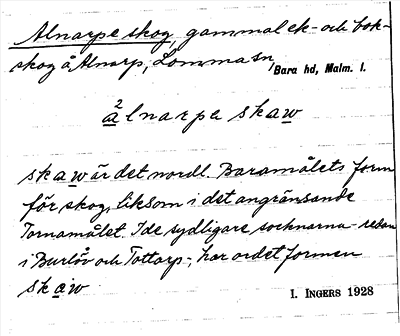 Alnarpe skog, gammal ek- och bok-
skog å Alnarp, Lomma sn, Bara hd, Malm. l.
2
alnarpa skaw
skaw är det nordl. Baramålets form
för skog, liksom i det angränsande
Tornamålet. I de sydligare socknarna - redan
i Burlöv och Tottarp -, har ordet formen
skaw
I. INGERS 1928